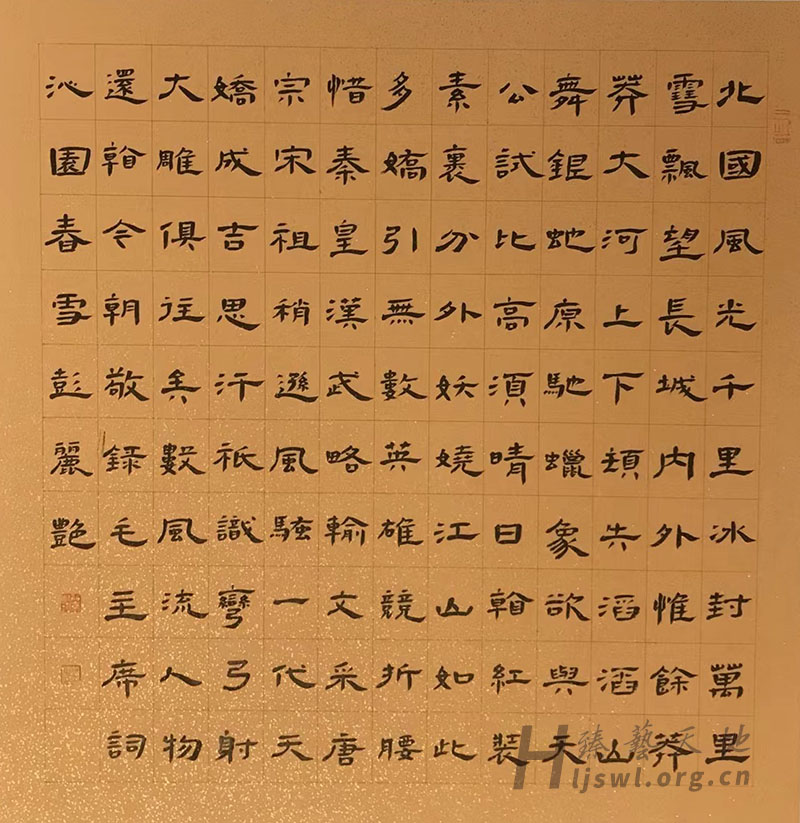 北國風光千里冰封萬里
雪飄望長城内外惟餘莽
莽大河上下頓失滔滔山
舞銀蛇原馳蠟象欲與天
公試比高須晴日看紅裝
素裹分外妖嬈江山如此
多嬌引無數英雄競折腰
惜秦皇漢武略輸文采唐
宗宋祖稍遜風騷一代天
嬌成吉思汗祇識彎弓射
大雕俱往矣數風流人物
還看今朝敬録毛主席詞
沁園春雪彭麗豔
臻藝天地
Hljswl.org.cn